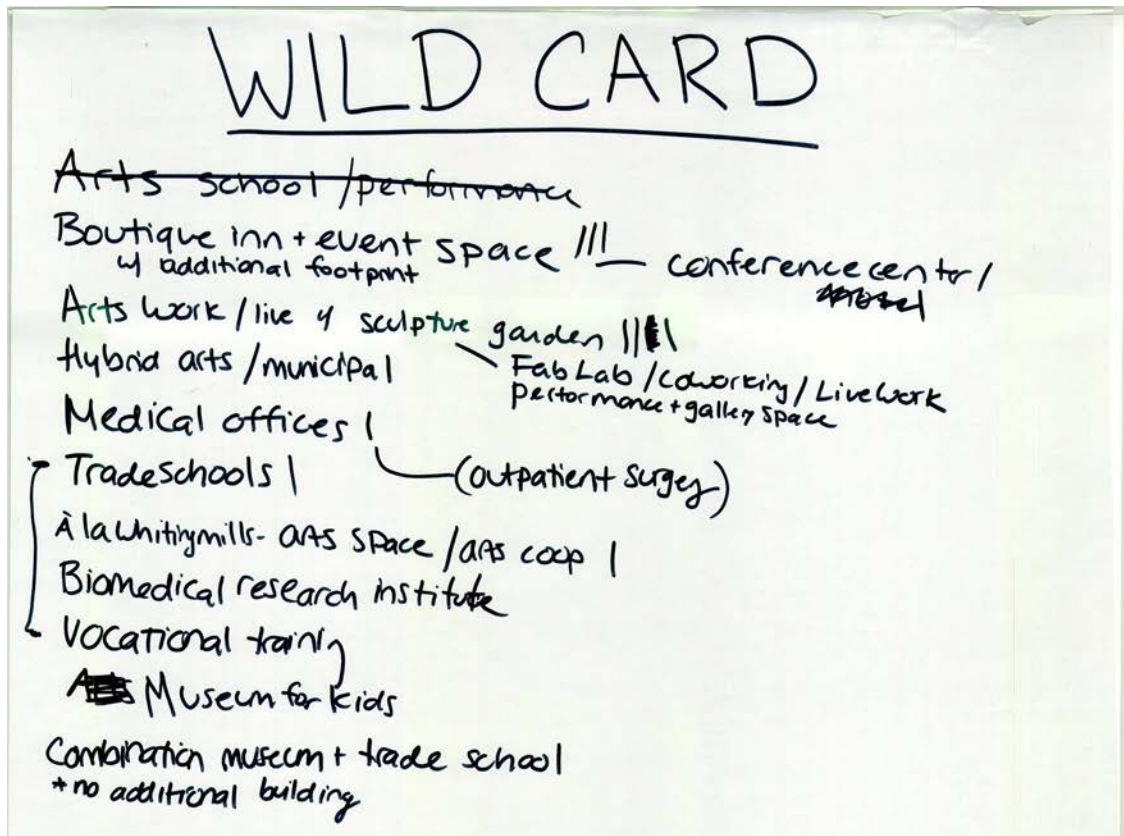 WILD CARD
Arts school /performance
Boutique inn + event space ||| — conference center /
w/ additional footprint
Arts work / live w/ sculpture garden ||||
Fab Lab / coworking / Live work
performance + gallery space
Hybrid arts / municipal
Medical offices |
(outpatient surgery)
Trade schools |
À la Whiting mills - arts space / arts coop |
Biomedical research institute
Vocational training
Museum for kids
Combination museum + trade school
* no additional building